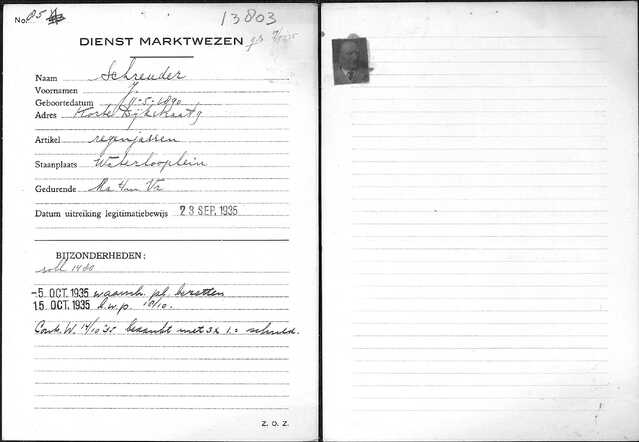 No. 85 13803
DIENST MARKTWEZEN
Naam Schreuder
Voornamen J.
Geboortedatum 9-5-1890
Adres Korte Dijkstraat 9
Artikel regenjassen
Staanplaats Waterlooplein
Gedurende Ma t/m Vr
Datum uitreiking legitimatiebewijs 23 SEP. 1935
BIJZONDERHEDEN:
soll 1480
-5. OCT. 1935 waarsch. pl. bezetten
15. OCT. 1935 d.w.p. 10/10.
Contr. W. 14/10 35 bezoekt met 3x schuld.
Z. O. Z.